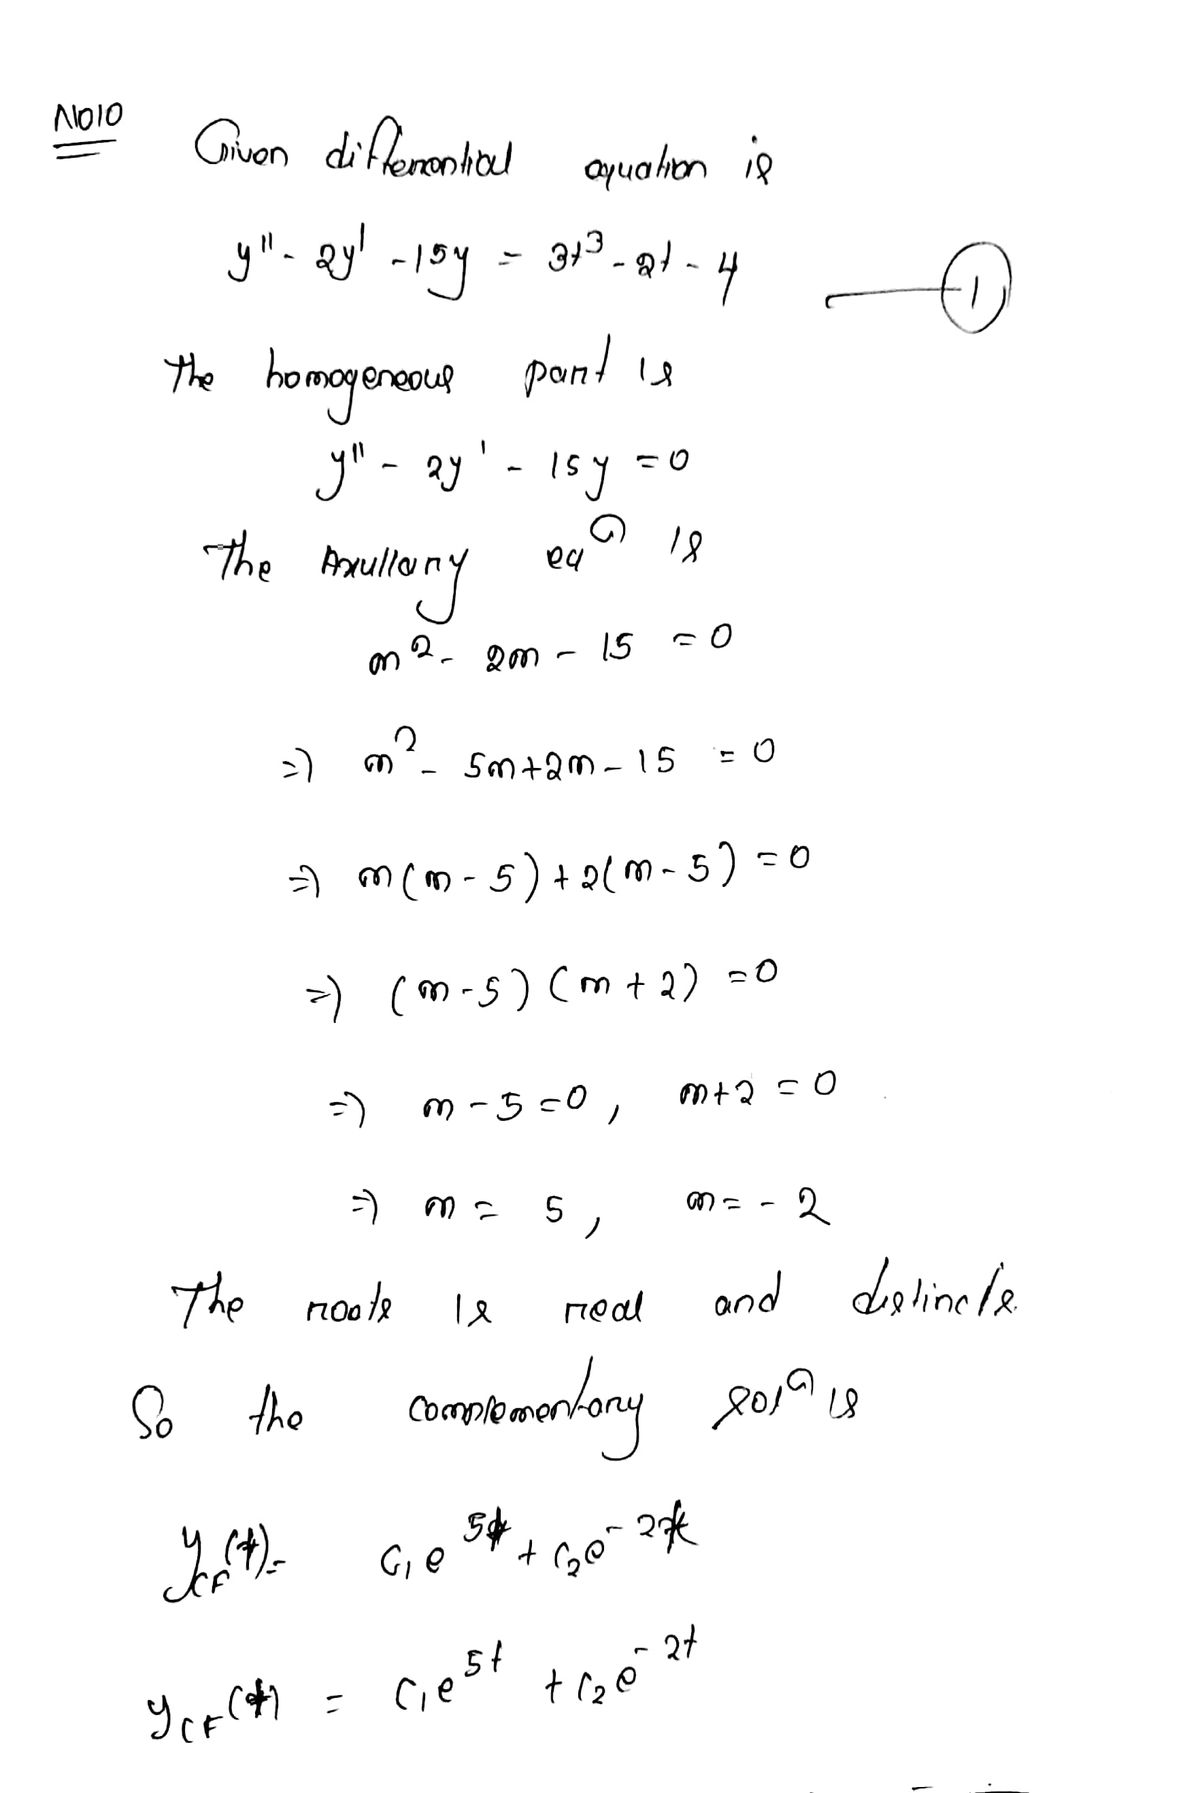 No10
Given differential equation is
y'' - 2y' - 15y = 3t³ - 2t - 4 ——— ①
The homogeneous part is
y'' - 2y' - 15y = 0
The Axullary eqⁿ is
m² - 2m - 15 = 0
=) m² - 5m + 2m - 15 = 0
=) m(m - 5) + 2(m - 5) = 0
=) (m - 5) (m + 2) = 0
=) m - 5 = 0, m + 2 = 0
=) m = 5, m = - 2
The roots is real and distincts.
So the complementary solⁿ is
y_CF(t) = C₁e^5t + C₂e^-2t
y_CF(t) = C₁e^5t + C₂e^-2t